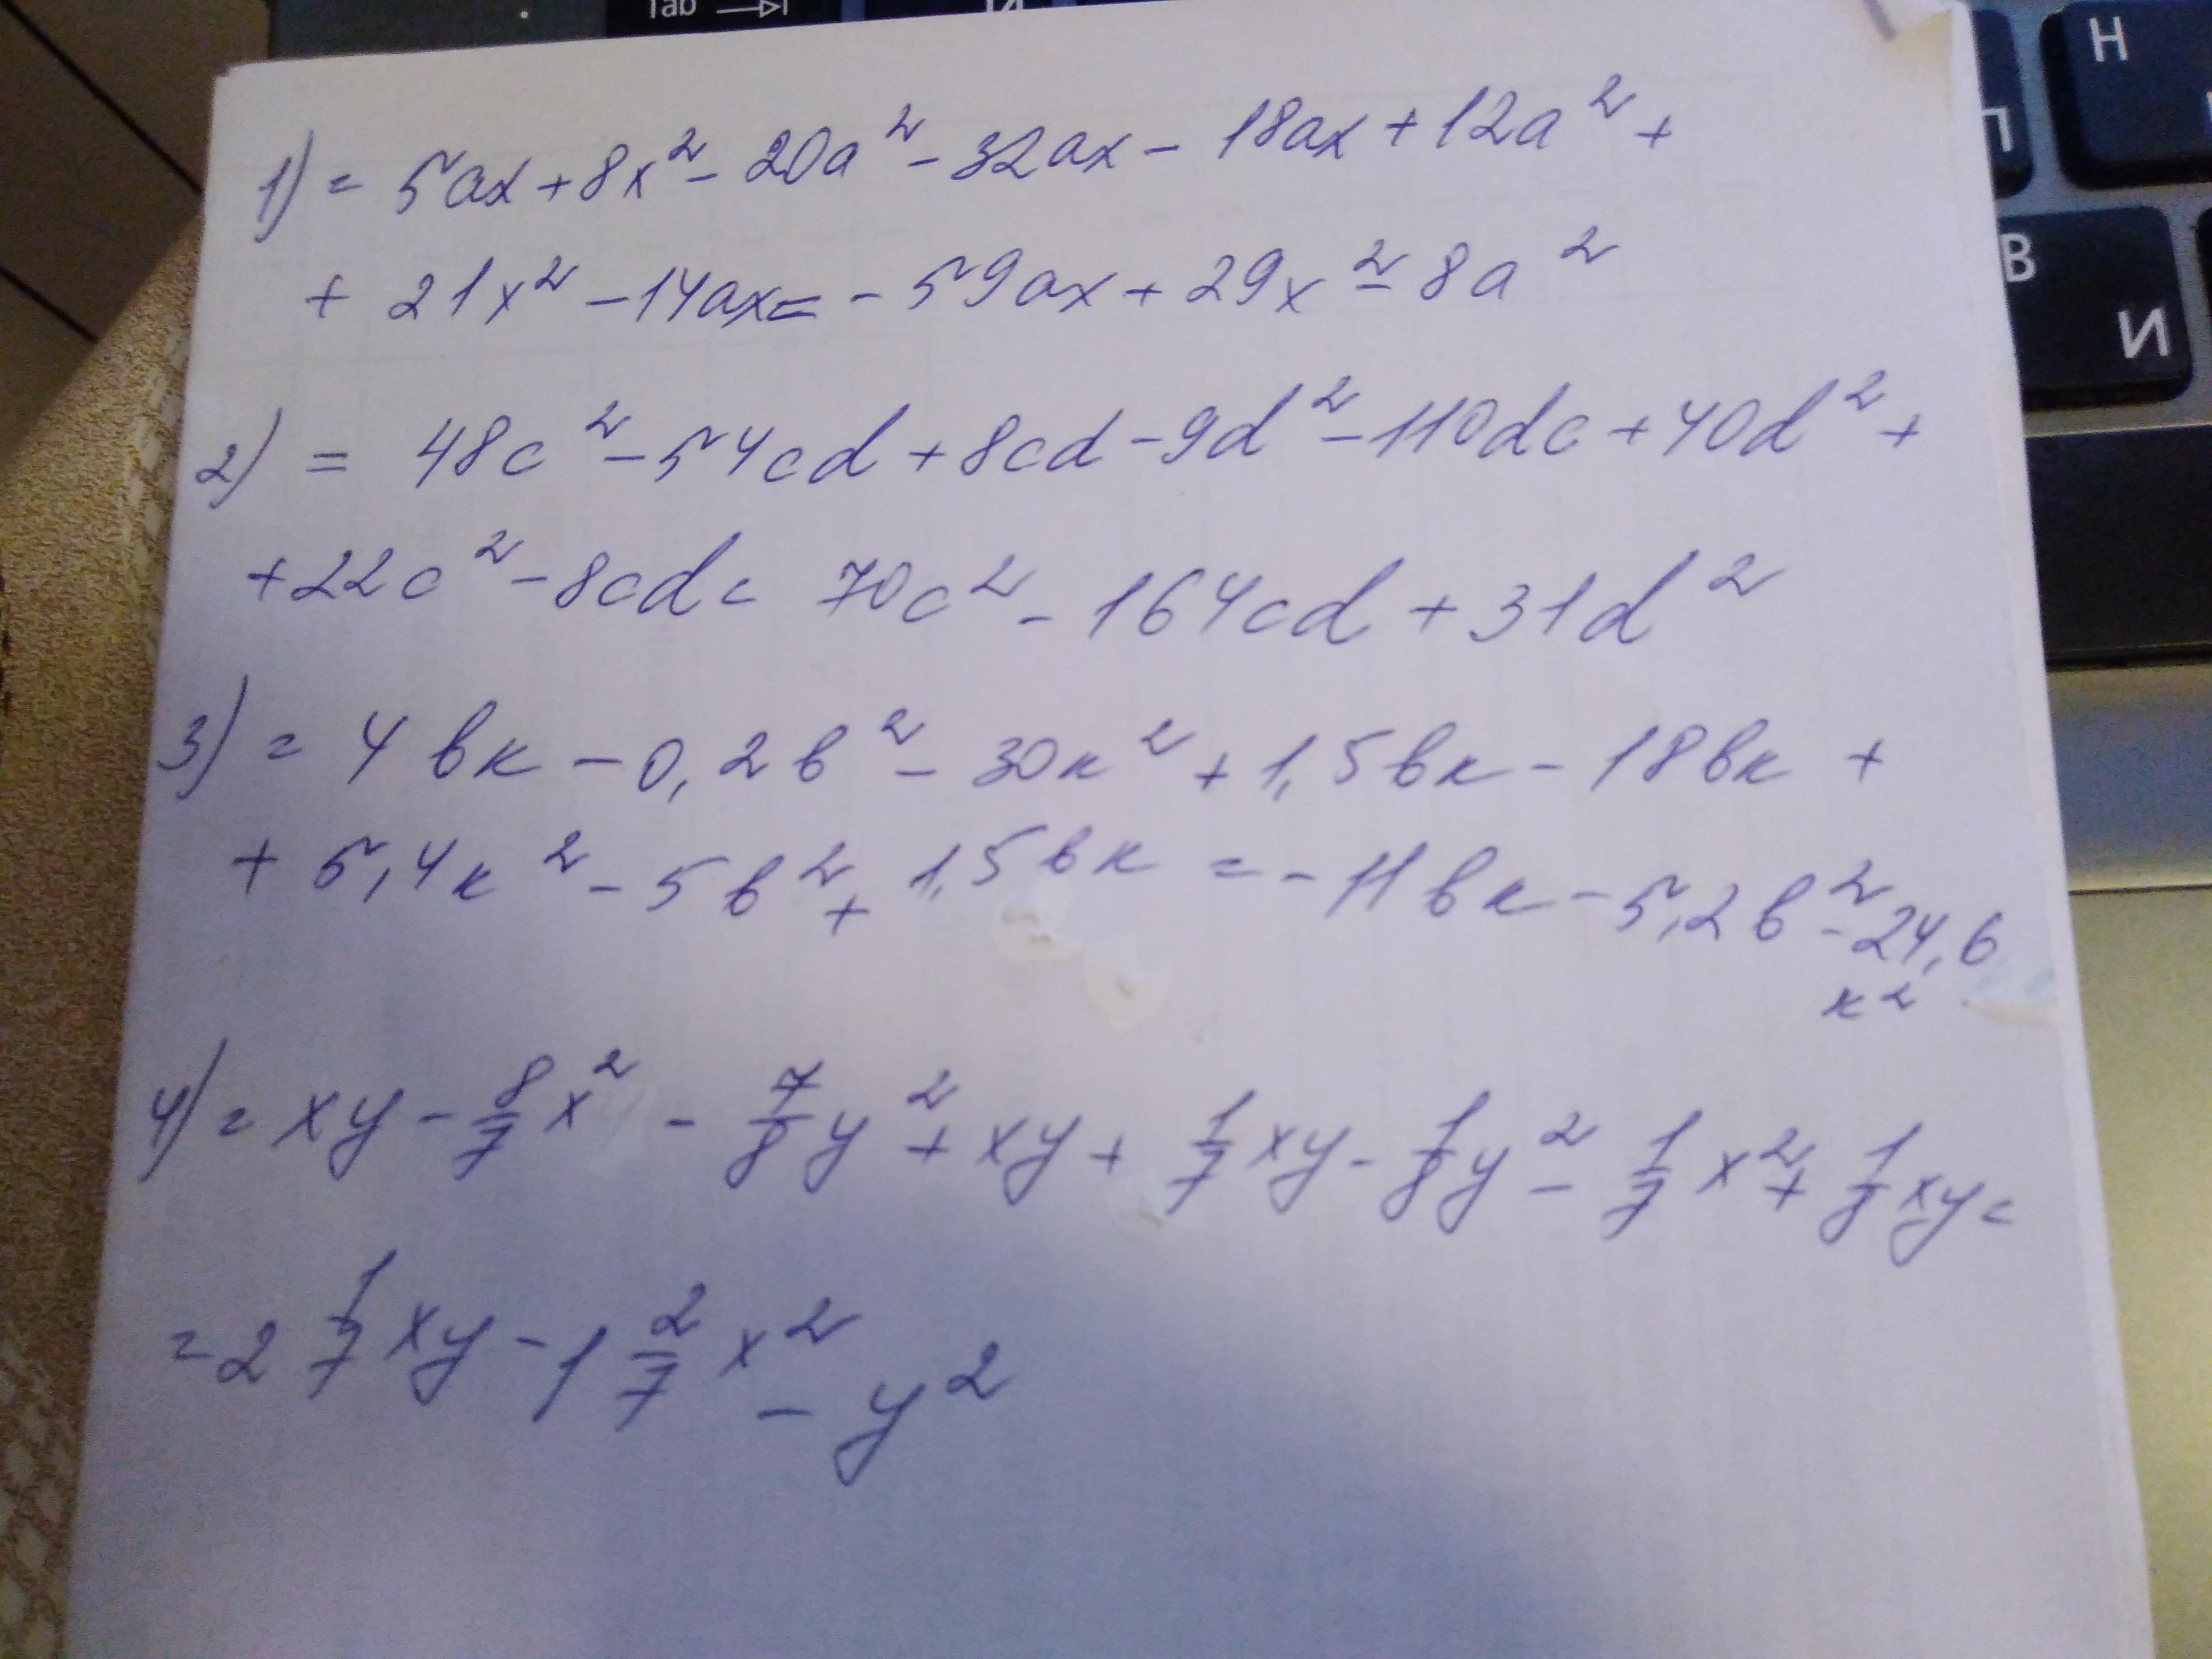 Tab
Н
В
И
1) = 5ax + 8x² - 20a² - 32ax - 18ax + 12a² +
+ 21x² - 14ax = - 59ax + 29x² - 8a²
2) = 48c² - 54cd + 8cd - 9d² - 110dc + 40d² +
+ 22c² - 8cd = 70c² - 164cd + 31d²
3) = 4вк - 0,2в² - 30к² + 1,5вк - 18вк +
+ 5,4к² - 5в² + 1,5вк = - 11вк - 5,2в² - 24,6
к²
4) = xy - 8/7 x² - 7/8 y² + xy + 1/7 xy - 1/8 y² - 1/7 x² + 1/8 xy =
= 2 1/7 xy - 1 2/7 x² - y²